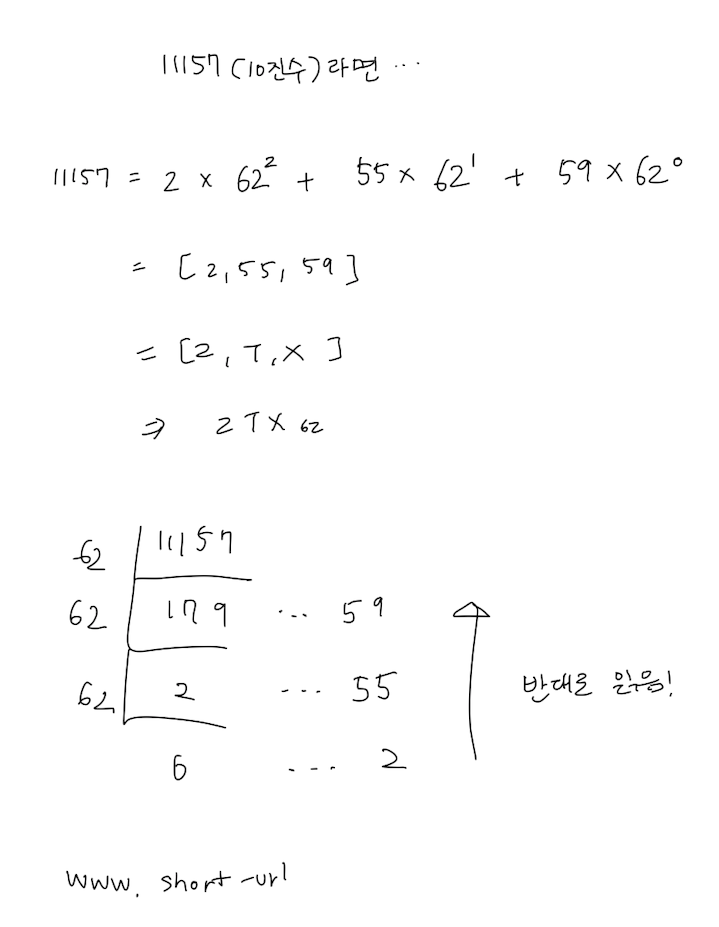 11157 (10진수) 라면 ...
11157 = 2 x 62² + 55 x 62¹ + 59 x 62⁰
= [2, 55, 59]
= [2, T, X]
⇒ 2TX₆₂
62 11157
62 179 ... 59
62 2 ... 55
0 ... 2
반대로 읽음!
www. short-url